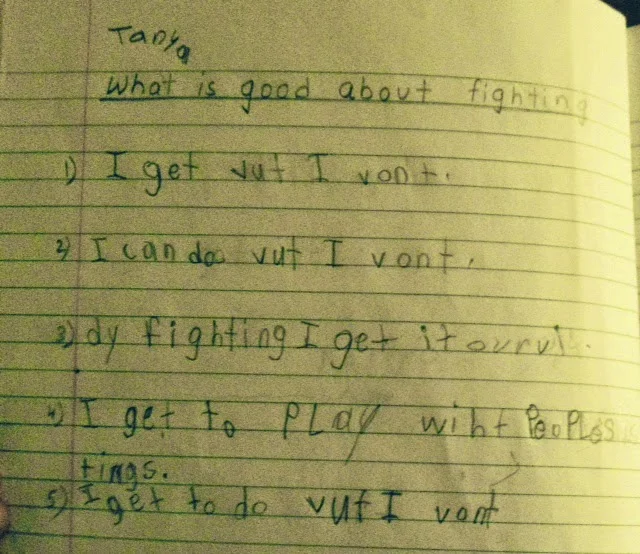 Tanya
What is good about fighting
1) I get vut I vont.
2) I can do vut I vont.
3) dy fighting I get it
4) I get to PLay wiht PeoPLes
tings.
5) I get to do vut I vont